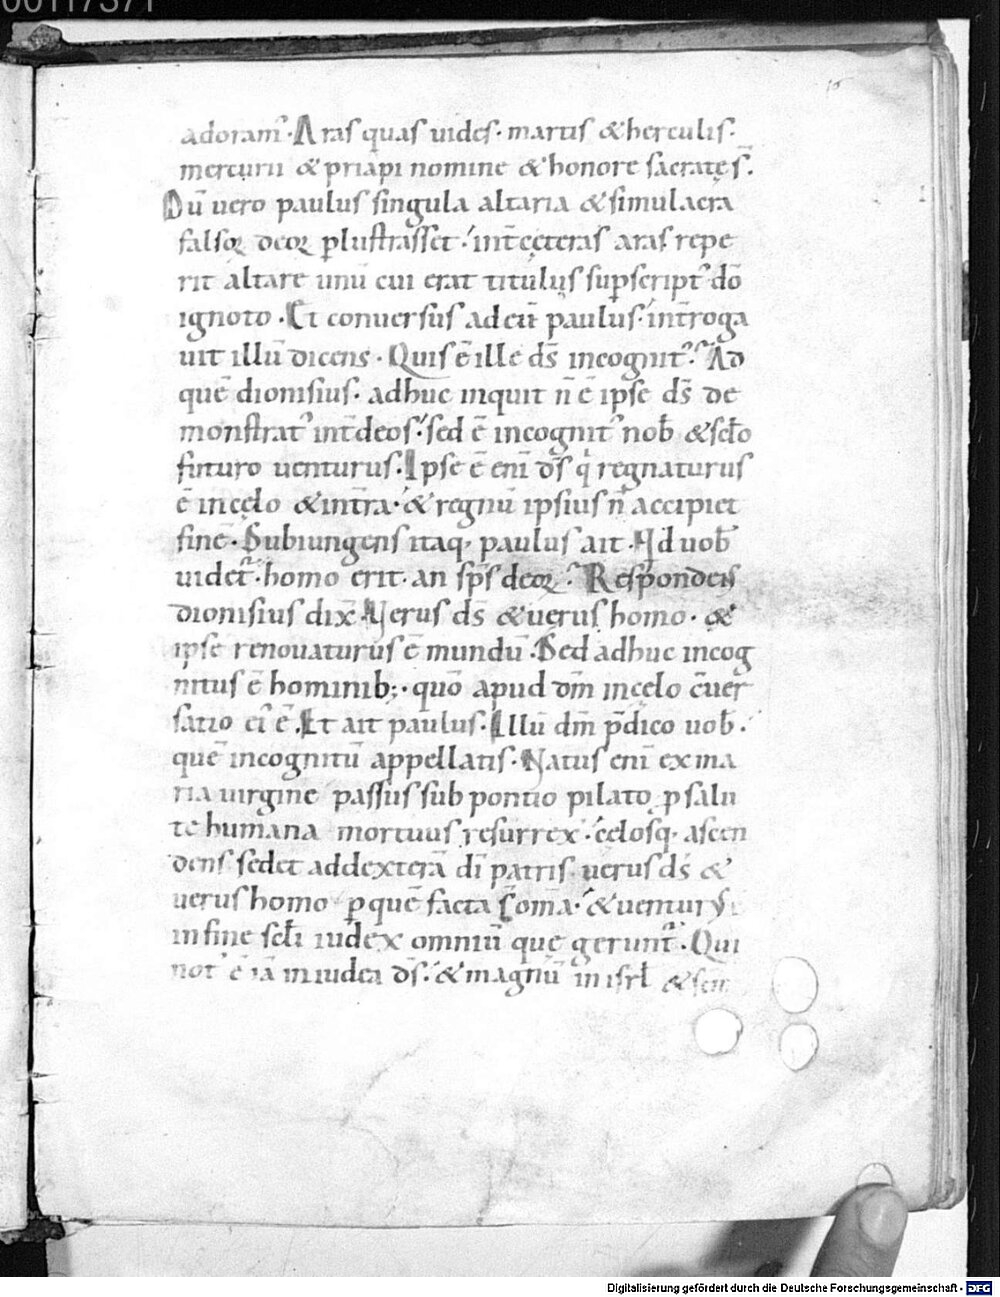 00117371
16
adoram᷒· Aras quas uides· martis & herculis·
mercurii & priapi nomine & honore sacratę s̄.
Dū uero paulus singula altaria & simulacra
falsoꝝ deoꝝ ꝑlustrasset· int̄ cęteras aras repe
rit altare unū cui erat titulus sup̄script᷒ dō
ignoto· Et conuersus ad eū paulus· int̄roga
uit illū dicens· Quis ē ille ds̄ incognit᷒? Ad
quē dionisius· adhuc inquit n̄ ē ipse ds̄ de
monstrat᷒ int̄ deos· sed ē incognit᷒ nob̄ & sc̄lo
futuro uenturus· Ipse ē eni ds̄ qⁱ regnaturus
ē in cęlo & in t̄ra· & regnū ipsius n̄ accipiet
finē· Subiungens itaq, paulus ait· Qd uob̄
uidet᷒· homo erit· an sp̄s deoꝝ? Respondens
dionisius dix̄· Verus ds̄ & uerus homo· &
ipse renouaturus ē mundū· Sed adhuc incog
nitus ē hominib;· quō apud dm̄ in cęlo c̄uer
satio ei᷒ ē· Et ait paulus· Illū dm̄ p̄dico uob̄·
quē incognitū appellatis· Natus eni ex ma
ria uirgine passus sub pontio pilato ꝓ salu
te humana mortuus resurrex̄· cęlosq, ascen
dens sedet ad dexterā dī patris uerus ds̄ &
uerus homo ꝑ quē facta s̄ om̄a· & uentur᷒
in fine sc̄li iudex omniū quę gerunt᷒· Qui
not᷒ ē iā in iudea ds̄· & magnū in isrl̄ & sc̄m
Digitalisierung gefördert durch die Deutsche Forschungsgemeinschaft - DFG